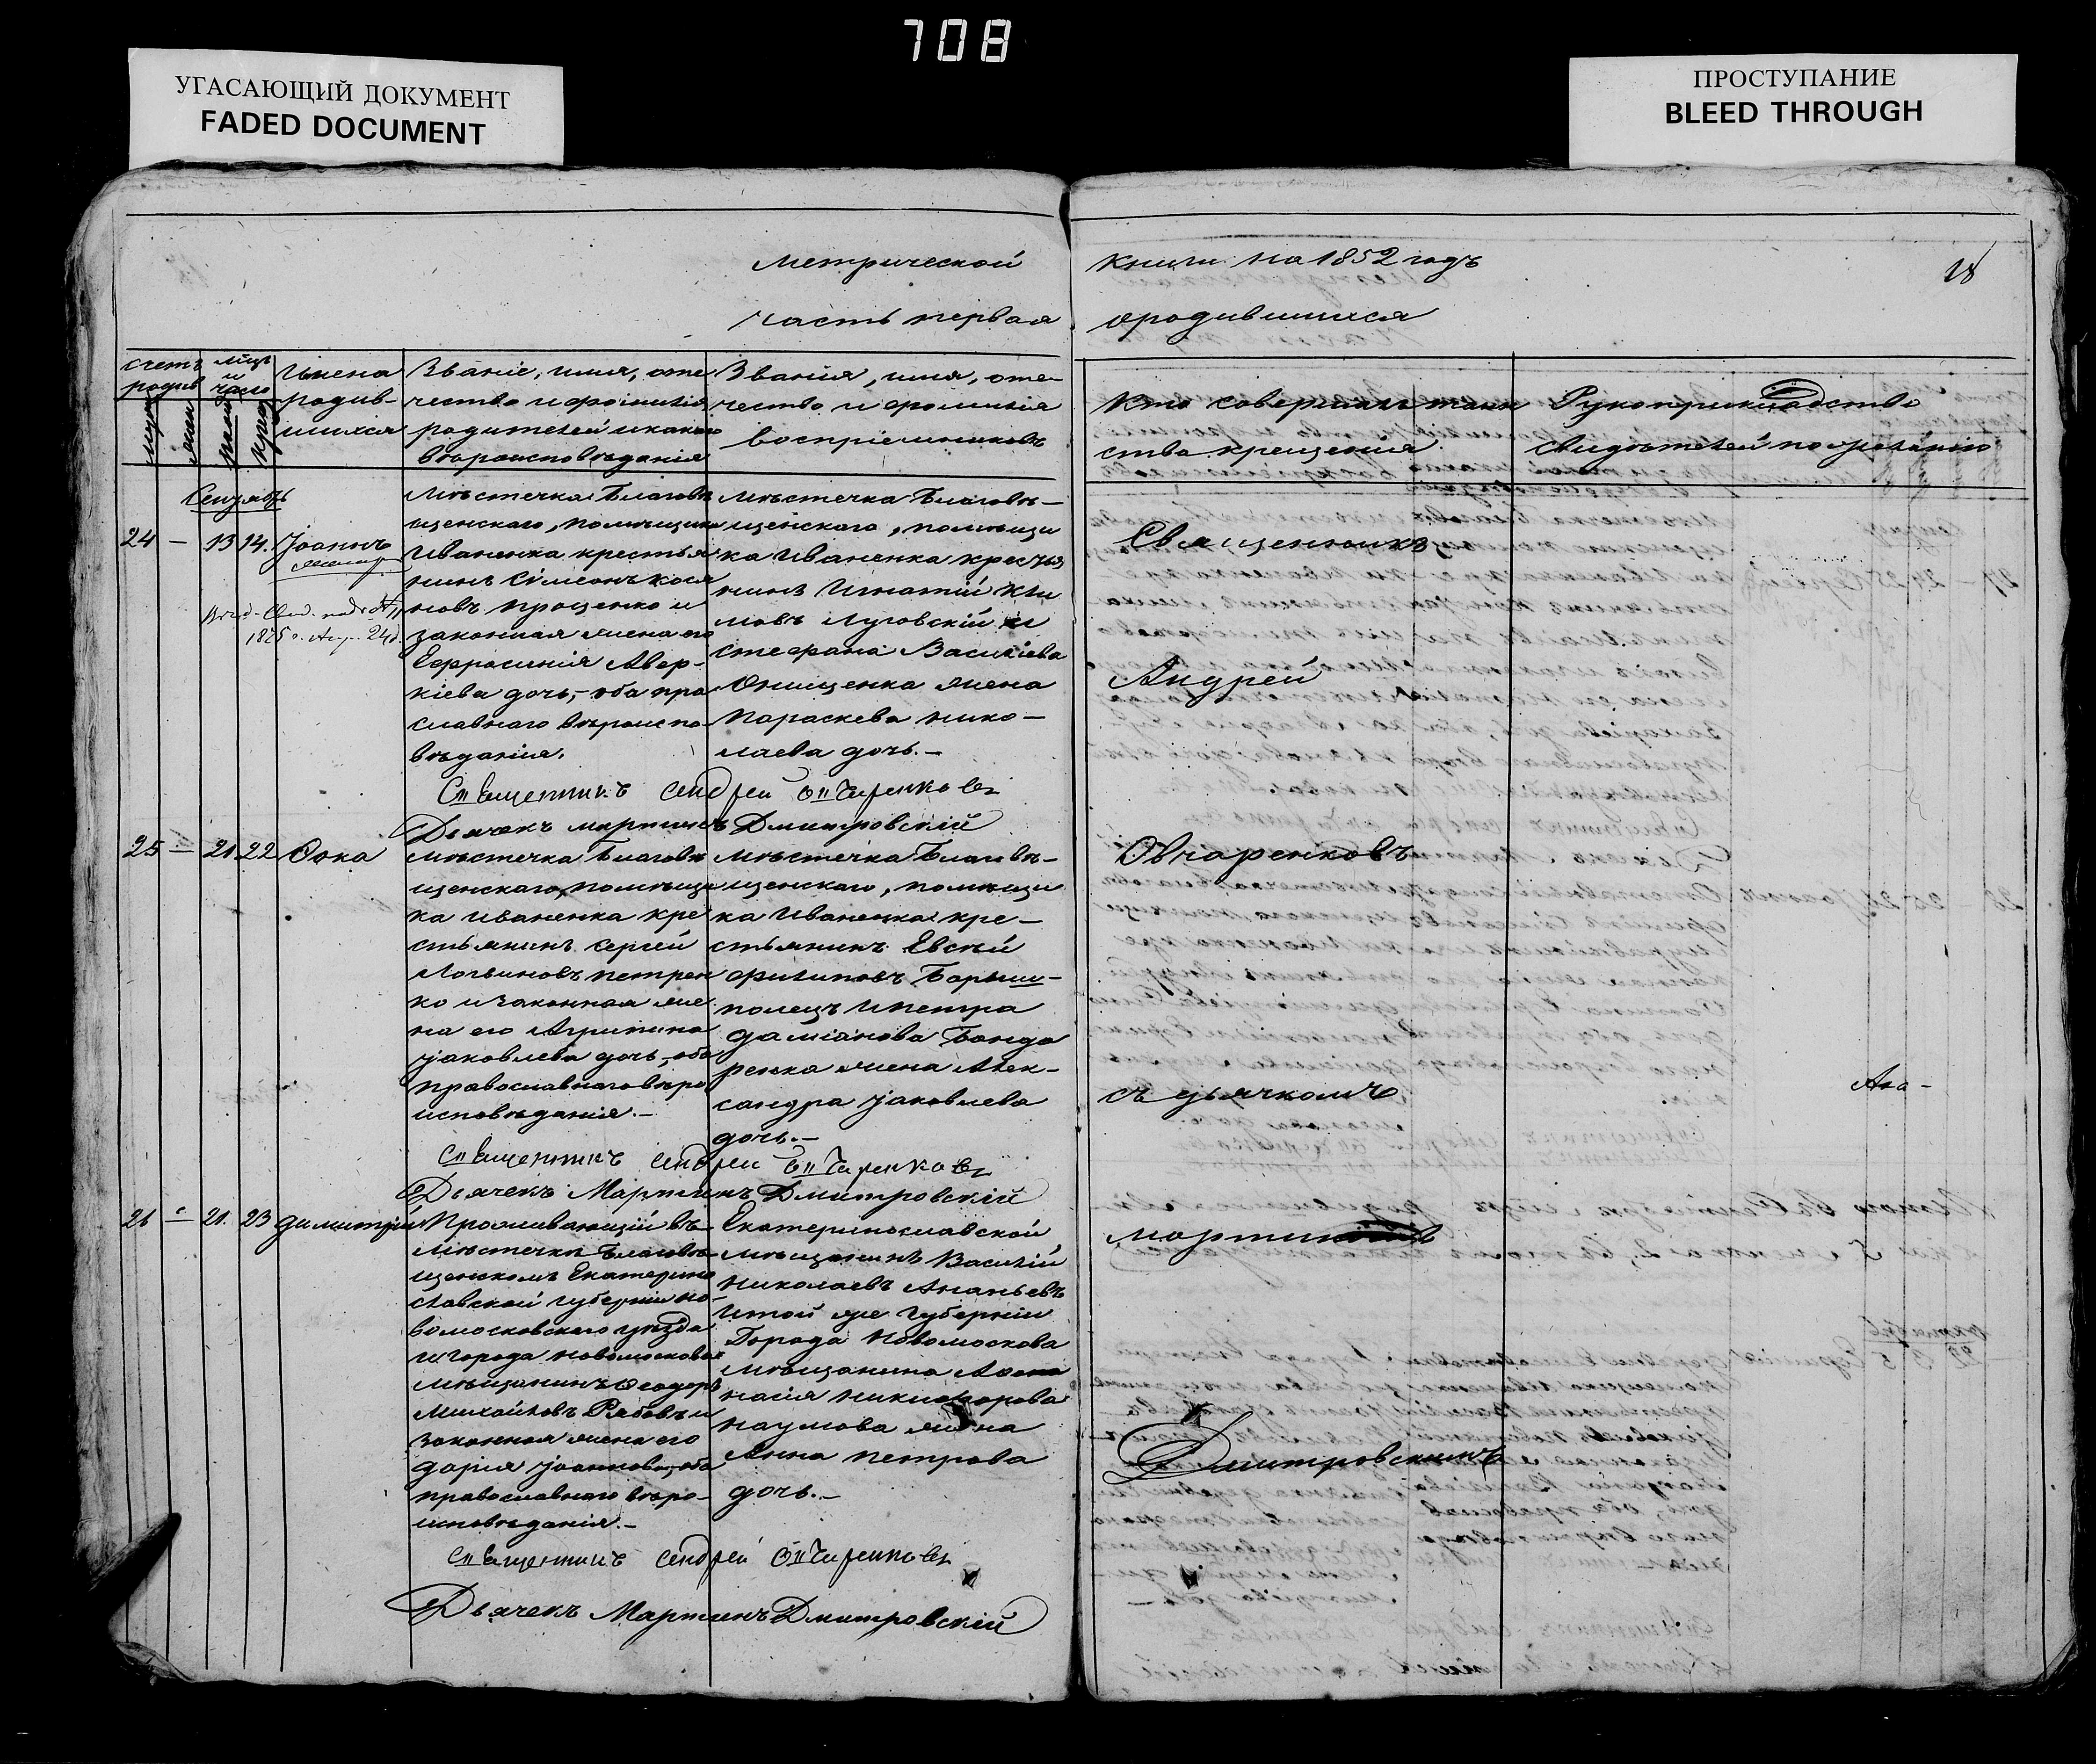 708
УГАСАЮЩИЙ ДОКУМЕНТ
FADED DOCUMENT
ПРОСТУПАНИЕ
BLEED THROUGH
Метрической
часть первая
книги на 1852 годъ
18
ородившихся
счетъ
родив
мцъ
и
число
Имена
родив-
шихся
Званіе, имя, оте
чество и фамилія
родителей и какого
вѣроисповѣданія
Званія, имя, оте-
чество и фамилія
воспріемниковъ
Кто совершалъ таин
ство крещения
Рукоприкладство
свидѣтелей по желанію
24 — 13 14. Іоаннъ
мѣстечка Благовѣ
щенскаго, помѣщика
Иваненка крестья
нинъ Сімеонъ Кося
новъ Проценко и
законная жена его
Евфросинія Авер-
кіева дочь, – оба пра
славнаго вѣроиспо
вѣданія.
мѣстечка Благовѣ-
щенскаго, помѣщи
ка Иваненка крестья
нинъ Игнатій Кли
мовъ Луговскій и
Стефана Василіева
Онищенка жена
Параскева Нико-
лаева дочь. –
Священникъ Андрей Овчаренковъ
Дьячекъ Мартинъ Дмитровскій
25 — 21. 22 Ѳока
мѣстечка Благовѣ
щенскаго, помѣщи
ка Иваненка кре
стьянинъ Сергей
Логвиновъ Петрен
ко и законная же
на его Агрипина
Іаковлева дочь, – оба
православнаго вѣро
исповѣданія. –
мѣстечка Благовѣ-
щенскаго, помѣщи
ка Иваненка кре-
стьянинъ Евсѣй
Филиповъ Барыш-
полецъ и Петра
Даміанова Бонда
ренка жена Алек-
сандра Іаковлева
дочь. –
Священникъ Андрей Овчаренковъ
Дьячекъ Мартинъ Дмитровскій
26 — 21. 23 Димитрій
Проживающій въ
мѣстечкѣ Благовѣ
щенскомъ Екатерино
славской губерніи Но-
вомосковскаго уѣзда
и города Новомосковска
мѣщанинъ Ѳеодоръ
Михайловъ Рябовъ и
законная жена его
Дарія Іоаннова, оба
православнаго вѣро-
исповѣданія. –
Екатеринославской
мѣщанинъ Василій
Николаевъ Ананьевъ
и той же Губерніи
Города Новомоскова
мѣщанина Афана
насія Никифорова
Наумова жена
Анна Петрова
дочь. –
Священникъ Андрей Овчаренковъ
Дьячекъ Мартинъ Дмитровскій
Священникъ
Андрей
Овчаренковъ
съ дьячкомъ
Мартиномъ
Дмитровскимъ